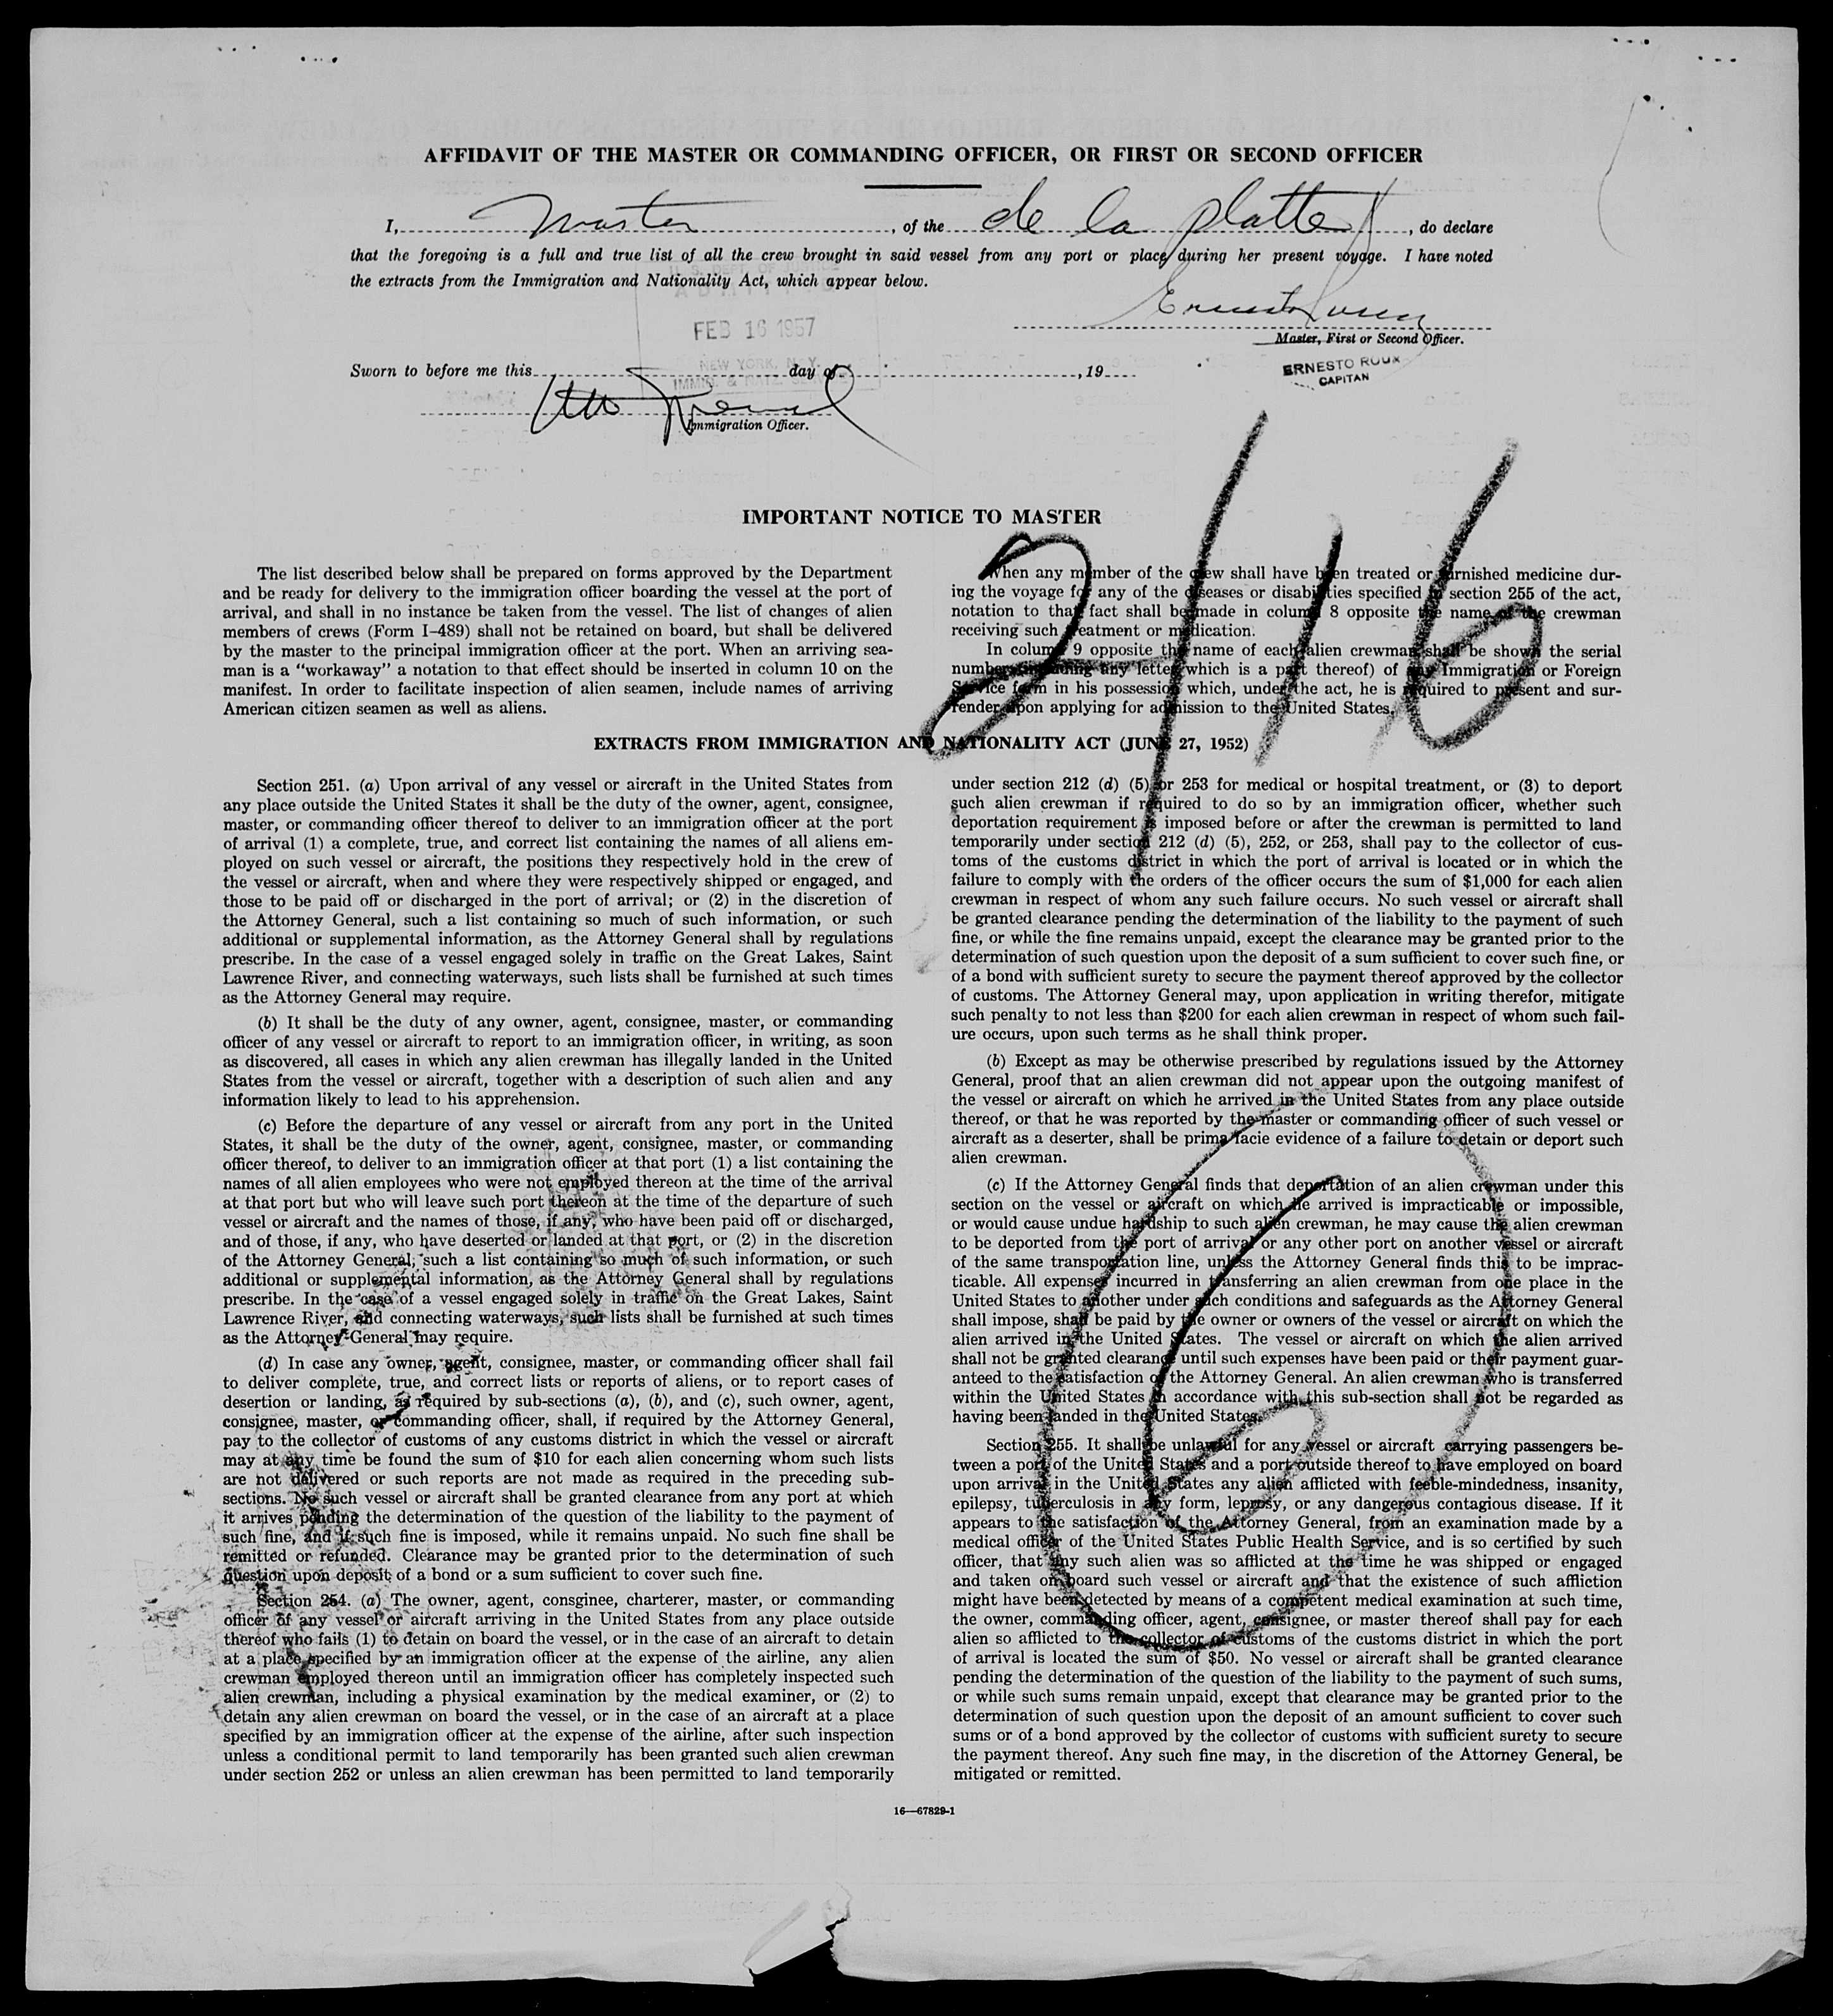 AFFIDAVIT OF THE MASTER OR COMMANDING OFFICER, OR FIRST OR SECOND OFFICER
I, Master, of the de la platte, do declare
that the foregoing is a full and true list of all the crew brought in said vessel from any port or place during her present voyage. I have noted
the extracts from the Immigration and Nationality Act, which appear below.
U. S. DEPT. OF JUSTICE
ADMITTED
FEB 16 1957
NEW YORK, N.Y.
IMMIG. & NATZ. SERVICE
Master, First or Second Officer.
ERNESTO ROUX
CAPITAN
Sworn to before me this day of , 19
Immigration Officer.
2/16
6
IMPORTANT NOTICE TO MASTER
The list described below shall be prepared on forms approved by the Department
and be ready for delivery to the immigration officer boarding the vessel at the port of
arrival, and shall in no instance be taken from the vessel. The list of changes of alien
members of crews (Form I–489) shall not be retained on board, but shall be delivered
by the master to the principal immigration officer at the port. When an arriving sea-
man is a "workaway" a notation to that effect should be inserted in column 10 on the
manifest. In order to facilitate inspection of alien seamen, include names of arriving
American citizen seamen as well as aliens.
When any member of the crew shall have been treated or furnished medicine dur-
ing the voyage for any of the diseases or disabilities specified in section 255 of the act,
notation to that fact shall be made in column 8 opposite the name of the crewman
receiving such treatment or medication.
In column 9 opposite the name of each alien crewman shall be shown the serial
number (including any letter which is a part thereof) of any Immigration or Foreign
Service form in his possession which, under the act, he is required to present and sur-
render upon applying for admission to the United States.
EXTRACTS FROM IMMIGRATION AND NATIONALITY ACT (JUNE 27, 1952)
Section 251. (a) Upon arrival of any vessel or aircraft in the United States from
any place outside the United States it shall be the duty of the owner, agent, consignee,
master, or commanding officer thereof to deliver to an immigration officer at the port
of arrival (1) a complete, true, and correct list containing the names of all aliens em-
ployed on such vessel or aircraft, the positions they respectively hold in the crew of
the vessel or aircraft, when and where they were respectively shipped or engaged, and
those to be paid off or discharged in the port of arrival; or (2) in the discretion of
the Attorney General, such a list containing so much of such information, or such
additional or supplemental information, as the Attorney General shall by regulations
prescribe. In the case of a vessel engaged solely in traffic on the Great Lakes, Saint
Lawrence River, and connecting waterways, such lists shall be furnished at such times
as the Attorney General may require.
(b) It shall be the duty of any owner, agent, consignee, master, or commanding
officer of any vessel or aircraft to report to an immigration officer, in writing, as soon
as discovered, all cases in which any alien crewman has illegally landed in the United
States from the vessel or aircraft, together with a description of such alien and any
information likely to lead to his apprehension.
(c) Before the departure of any vessel or aircraft from any port in the United
States, it shall be the duty of the owner, agent, consignee, master, or commanding
officer thereof, to deliver to an immigration officer at that port (1) a list containing the
names of all alien employees who were not employed thereon at the time of the arrival
at that port but who will leave such port thereon at the time of the departure of such
vessel or aircraft and the names of those, if any, who have been paid off or discharged,
and of those, if any, who have deserted or landed at that port, or (2) in the discretion
of the Attorney General, such a list containing so much of such information, or such
additional or supplemental information, as the Attorney General shall by regulations
prescribe. In the case of a vessel engaged solely in traffic on the Great Lakes, Saint
Lawrence River, and connecting waterways, such lists shall be furnished at such times
as the Attorney General may require.
(d) In case any owner, agent, consignee, master, or commanding officer shall fail
to deliver complete, true, and correct lists or reports of aliens, or to report cases of
desertion or landing, as required by sub-sections (a), (b), and (c), such owner, agent,
consignee, master, or commanding officer, shall, if required by the Attorney General,
pay to the collector of customs of any customs district in which the vessel or aircraft
may at any time be found the sum of $10 for each alien concerning whom such lists
are not delivered or such reports are not made as required in the preceding sub-
sections. No such vessel or aircraft shall be granted clearance from any port at which
it arrives pending the determination of the question of the liability to the payment of
such fine, and if such fine is imposed, while it remains unpaid. No such fine shall be
remitted or refunded. Clearance may be granted prior to the determination of such
question upon deposit of a bond or a sum sufficient to cover such fine.
Section 254. (a) The owner, agent, consginee, charterer, master, or commanding
officer of any vessel or aircraft arriving in the United States from any place outside
thereof who fails (1) to detain on board the vessel, or in the case of an aircraft to detain
at a place specified by an immigration officer at the expense of the airline, any alien
crewman employed thereon until an immigration officer has completely inspected such
alien crewman, including a physical examination by the medical examiner, or (2) to
detain any alien crewman on board the vessel, or in the case of an aircraft at a place
specified by an immigration officer at the expense of the airline, after such inspection
unless a conditional permit to land temporarily has been granted such alien crewman
under section 252 or unless an alien crewman has been permitted to land temporarily
under section 212 (d) (5) or 253 for medical or hospital treatment, or (3) to deport
such alien crewman if required to do so by an immigration officer, whether such
deportation requirement is imposed before or after the crewman is permitted to land
temporarily under section 212 (d) (5), 252, or 253, shall pay to the collector of cus-
toms of the customs district in which the port of arrival is located or in which the
failure to comply with the orders of the officer occurs the sum of $1,000 for each alien
crewman in respect of whom any such failure occurs. No such vessel or aircraft shall
be granted clearance pending the determination of the liability to the payment of such
fine, or while the fine remains unpaid, except the clearance may be granted prior to the
determination of such question upon the deposit of a sum sufficient to cover such fine, or
of a bond with sufficient surety to secure the payment thereof approved by the collector
of customs. The Attorney General may, upon application in writing therefor, mitigate
such penalty to not less than $200 for each alien crewman in respect of whom such fail-
ure occurs, upon such terms as he shall think proper.
(b) Except as may be otherwise prescribed by regulations issued by the Attorney
General, proof that an alien crewman did not appear upon the outgoing manifest of
the vessel or aircraft on which he arrived in the United States from any place outside
thereof, or that he was reported by the master or commanding officer of such vessel or
aircraft as a deserter, shall be prima facie evidence of a failure to detain or deport such
alien crewman.
(c) If the Attorney General finds that deportation of an alien crewman under this
section on the vessel or aircraft on which he arrived is impracticable or impossible,
or would cause undue hardship to such alien crewman, he may cause the alien crewman
to be deported from the port of arrival or any other port on another vessel or aircraft
of the same transportation line, unless the Attorney General finds this to be imprac-
ticable. All expenses incurred in transferring an alien crewman from one place in the
United States to another under such conditions and safeguards as the Attorney General
shall impose, shall be paid by the owner or owners of the vessel or aircraft on which the
alien arrived in the United States. The vessel or aircraft on which the alien arrived
shall not be granted clearance until such expenses have been paid or their payment guar-
anteed to the satisfaction of the Attorney General. An alien crewman who is transferred
within the United States in accordance with this sub-section shall not be regarded as
having been landed in the United States.
Section 255. It shall be unlawful for any vessel or aircraft carrying passengers be-
tween a port of the United States and a port outside thereof to have employed on board
upon arrival in the United States any alien afflicted with feeble-mindedness, insanity,
epilepsy, tuberculosis in any form, leprosy, or any dangerous contagious disease. If it
appears to the satisfaction of the Attorney General, from an examination made by a
medical officer of the United States Public Health Service, and is so certified by such
officer, that any such alien was so afflicted at the time he was shipped or engaged
and taken on board such vessel or aircraft and that the existence of such affliction
might have been detected by means of a competent medical examination at such time,
the owner, commanding officer, agent, consignee, or master thereof shall pay for each
alien so afflicted to the collector of customs of the customs district in which the port
of arrival is located the sum of $50. No vessel or aircraft shall be granted clearance
pending the determination of the question of the liability to the payment of such sums,
or while such sums remain unpaid, except that clearance may be granted prior to the
determination of such question upon the deposit of an amount sufficient to cover such
sums or of a bond approved by the collector of customs with sufficient surety to secure
the payment thereof. Any such fine may, in the discretion of the Attorney General, be
mitigated or remitted.
16—67829-1